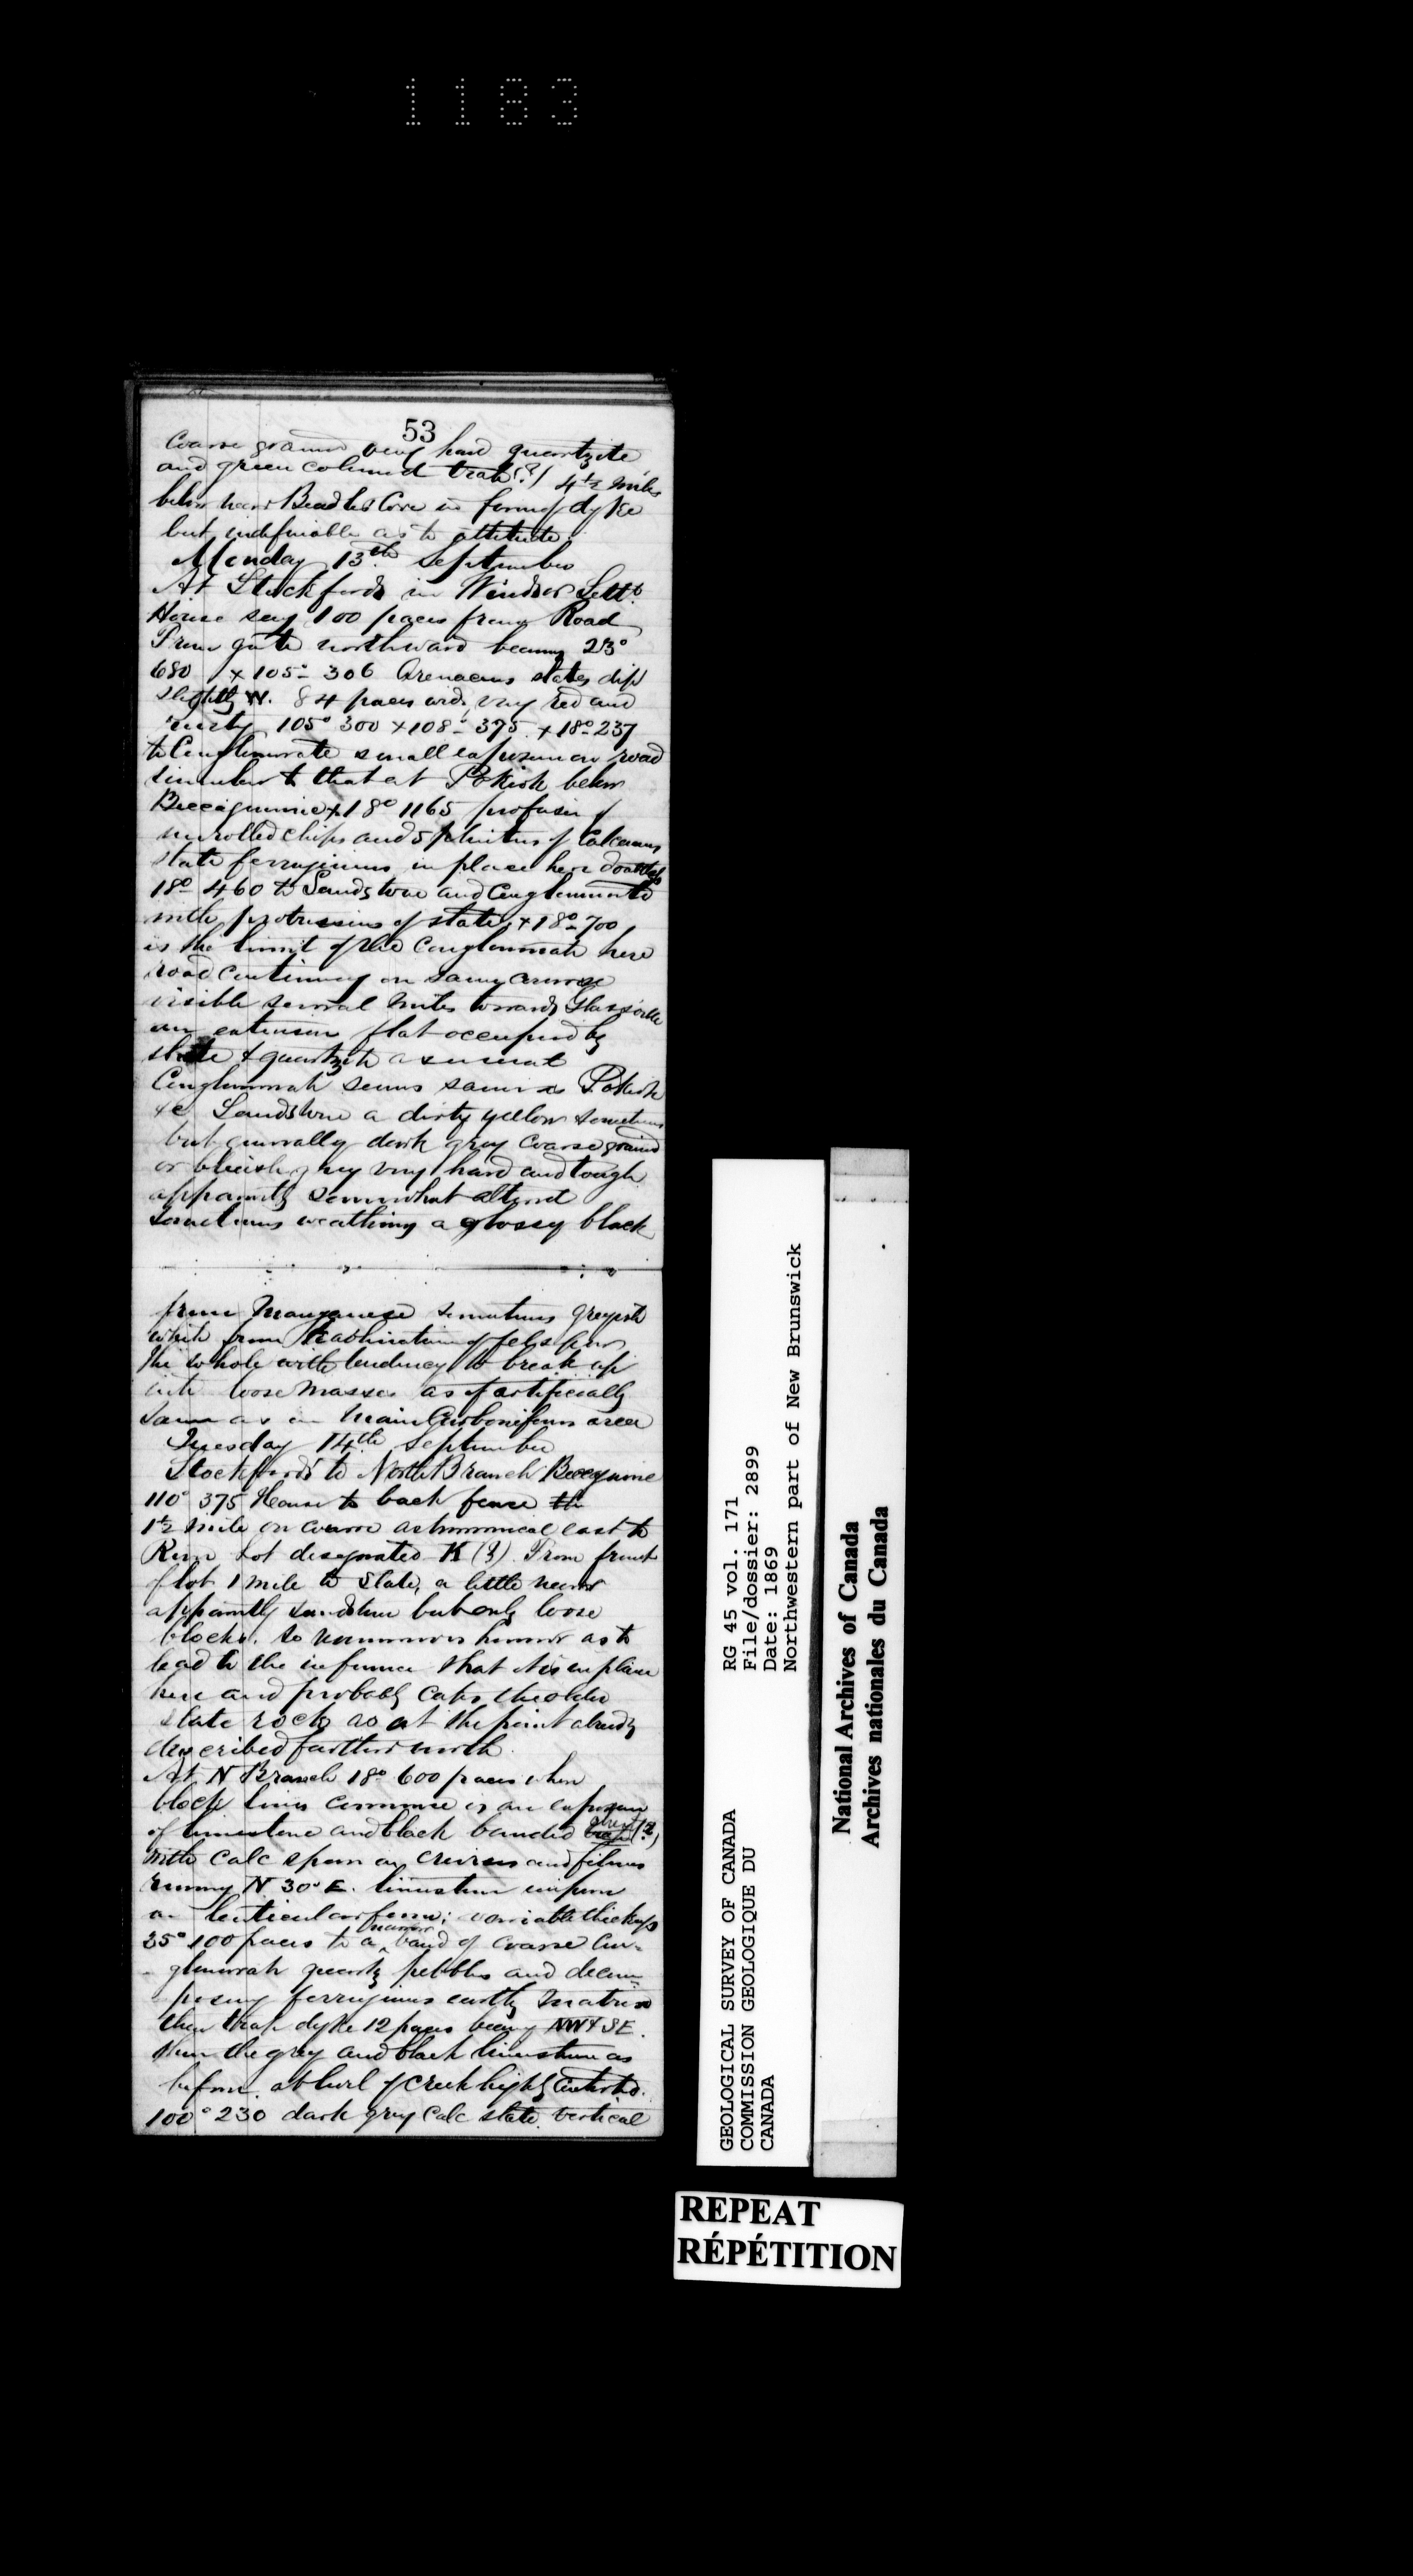 1183
53
Coarse grained very hard quartzite
and green coloured trap (?) 4½ miles
below near Beadles Cove in form of dyke
but indefinable as to attitude.
Monday 13th September
At Stockfords in Windsor Settt.
House say 100 paces from Road
From gate northward bearing 23°
680 + 105° - 306 Arenaceous slates dip
slightly W. 84 paces wide, very red and
rusty 105° 300 + 108° - 375 + 18° - 237
to Conglomerate small exposure on road
similar to that at Pokiok below
Beccaguimic + 18° 1165 profusion of
unrolled chips and splinters of Calcareous
slate ferruginous in place here doubtless
18° 460 to Sandstone and Conglomerate
with protrusions of slate, + 18° - 700
is the limit of the Conglomerate here
road continuing on same course
visible several miles towards Glassville
an extensive flat occupied by
slate & quartzite as usual
Conglomerate seems same as Pokiok
&c Sandstone a dirty yellow sometimes
but generally dark grey coarse grained
or blueish grey very hard and tough
apparently somewhat altered
sometimes weathering a glossy black
from Manganese sometimes greyish
white from Kaolinization of felspar
the whole with tendency to break up
into loose masses as if artificially
same as in Main Carboniferous area
Tuesday 14th September
Stockfords to North Branch Becaguimic
110° 375 House to back fence
1½ mile on course astronomical east to
lot designated K (?). From front
of lot 1 mile to slate, a little nearer
apparently sandstone but only loose
blocks. So numerous however as to
lead to the inference that it is in place
here and probably caps the older
slate rocks as at the point already
described farther north.
At N Branch 18° 600 paces when
block lines commence is an exposure
of limestone and black banded (?)
with calc spar on crevices and films
running N 30° E. limestone uniform
on lenticular form; variable thickness
35° 100 paces to a narrow band of coarse Con-
glomerate quartz pebbles and decom-
posing ferruginous earthy matrix
then trap dyke 12 paces bearing NW & SE.
Then the grey and black limestone as
before. at bend of creek highly contorted.
100° 230 dark grey calc slate. vertical
GEOLOGICAL SURVEY OF CANADA
COMMISSION GEOLOGIQUE DU
CANADA
RG 45 vol. 171
File/dossier: 2899
Date: 1869
Northwestern part of New Brunswick
National Archives of Canada
Archives nationales du Canada
REPEAT
RÉPÉTITION